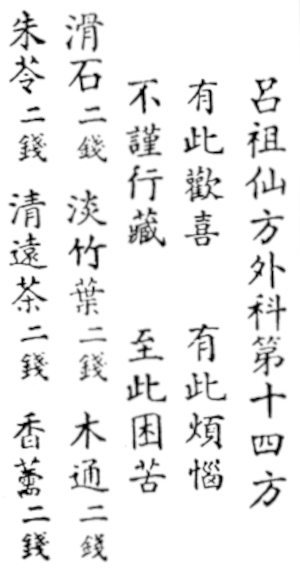 呂祖仙方外科第十四方
有此歡喜 有此煩惱
不謹行藏 至此困苦
滑石二錢 淡竹葉二錢 木通二錢
朱苓二錢 清遠茶二錢 香薷二錢